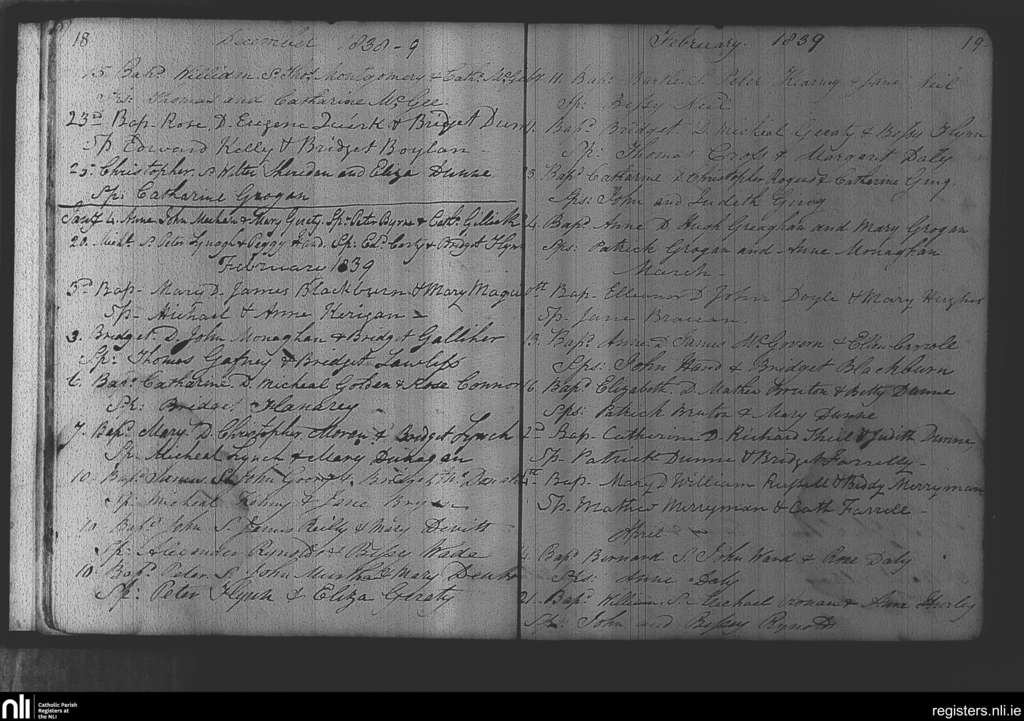 18 December 1838-9
15. Bapd. William S. Thos. Montgomery & Cath. McGee
Sps: Thomas and Catharine McGee
23rd Bap. Rose D. Eugene Quirk & Bridget Dunn
Sp. Edward Kelly & Bridget Boylan
25: Christopher. S. Peter Sheridan and Eliza Dunne
Sp: Catharine Grogan
4. Anne John Meehan & Mary Geraty Sp: Peter Byrne & Cath.
20. Michl. S. Peter Lynagh & Peggy Sp: Ed. & Bridget Flynn
February 1839
3d Bap. Mary D. James Blackburn & Mary Maguire
Sp. Michael & Anne Kerigan
3. Bridget. D. John Monaghan & Bridgt Galliher
Sp: Thomas Gafney & Bridget Lawless
6. Bap: Catharine D. Micheal Golden & Rose Connor
Sp: Bridget Flanarey
7. Bapd. Mary D. Christopher Moran & Bridget Lynch
Sp: Micheal Lynch & Mary Duhagan
10. Bapd. James S. John &
Sp: Micheal & Jane
10. Bapd. John S. James Reilly & Mary Devitt
Sp: Alexander Rynolds & Bessey Wade
10. Bapd. Peter S. John Murtha & Mary
Sp: Peter Flynn & Eliza Geraty
February. 1839 19
11. Bapd. S. Peter Kearny & Jane Neil
Sp: Bessey Neil
Bapd. Bridget. D. Micheal Geraty & Bessy Flynn
Sp: Thomas Cross & Margaret Daly
3. Bapd. Catharine D. Christopher & Catharine
Sps: John and Judith
24. Bapd. Anne D. Hugh Greaghan and Mary Grogan
Sps: Patrick Grogan and Anne Monaghan
March
Bap. Elleanor D. John Doyle & Mary Hughes
Sp. Jane
13. Bapd. Anne D. James McGovern & Ellen Carrole
Sps: John Hand & Bridget Blackburn
16 Bapd. Elizabeth. D. Mathew Bruton & Betty Dunne
Sps: Patrick Bruton & Mary Dunne
Bap. Catherine D. Richard & Judith Dunne
Sp. Patrick Dunne & Bridget Farrelly
Bap. Mary D. William Russell & Biddy Merryman
Sp. Mathew Merryman & Cath Farrell
April
Bapd. Bernard S. John Ward & Rose Daly
Sps: Anne Daly
21. Bapd. William. S. Micheal & Anne
Sp: John and Bessey Rynolds
nli
Catholic Parish
Registers at
the NLI
registers.nli.ie